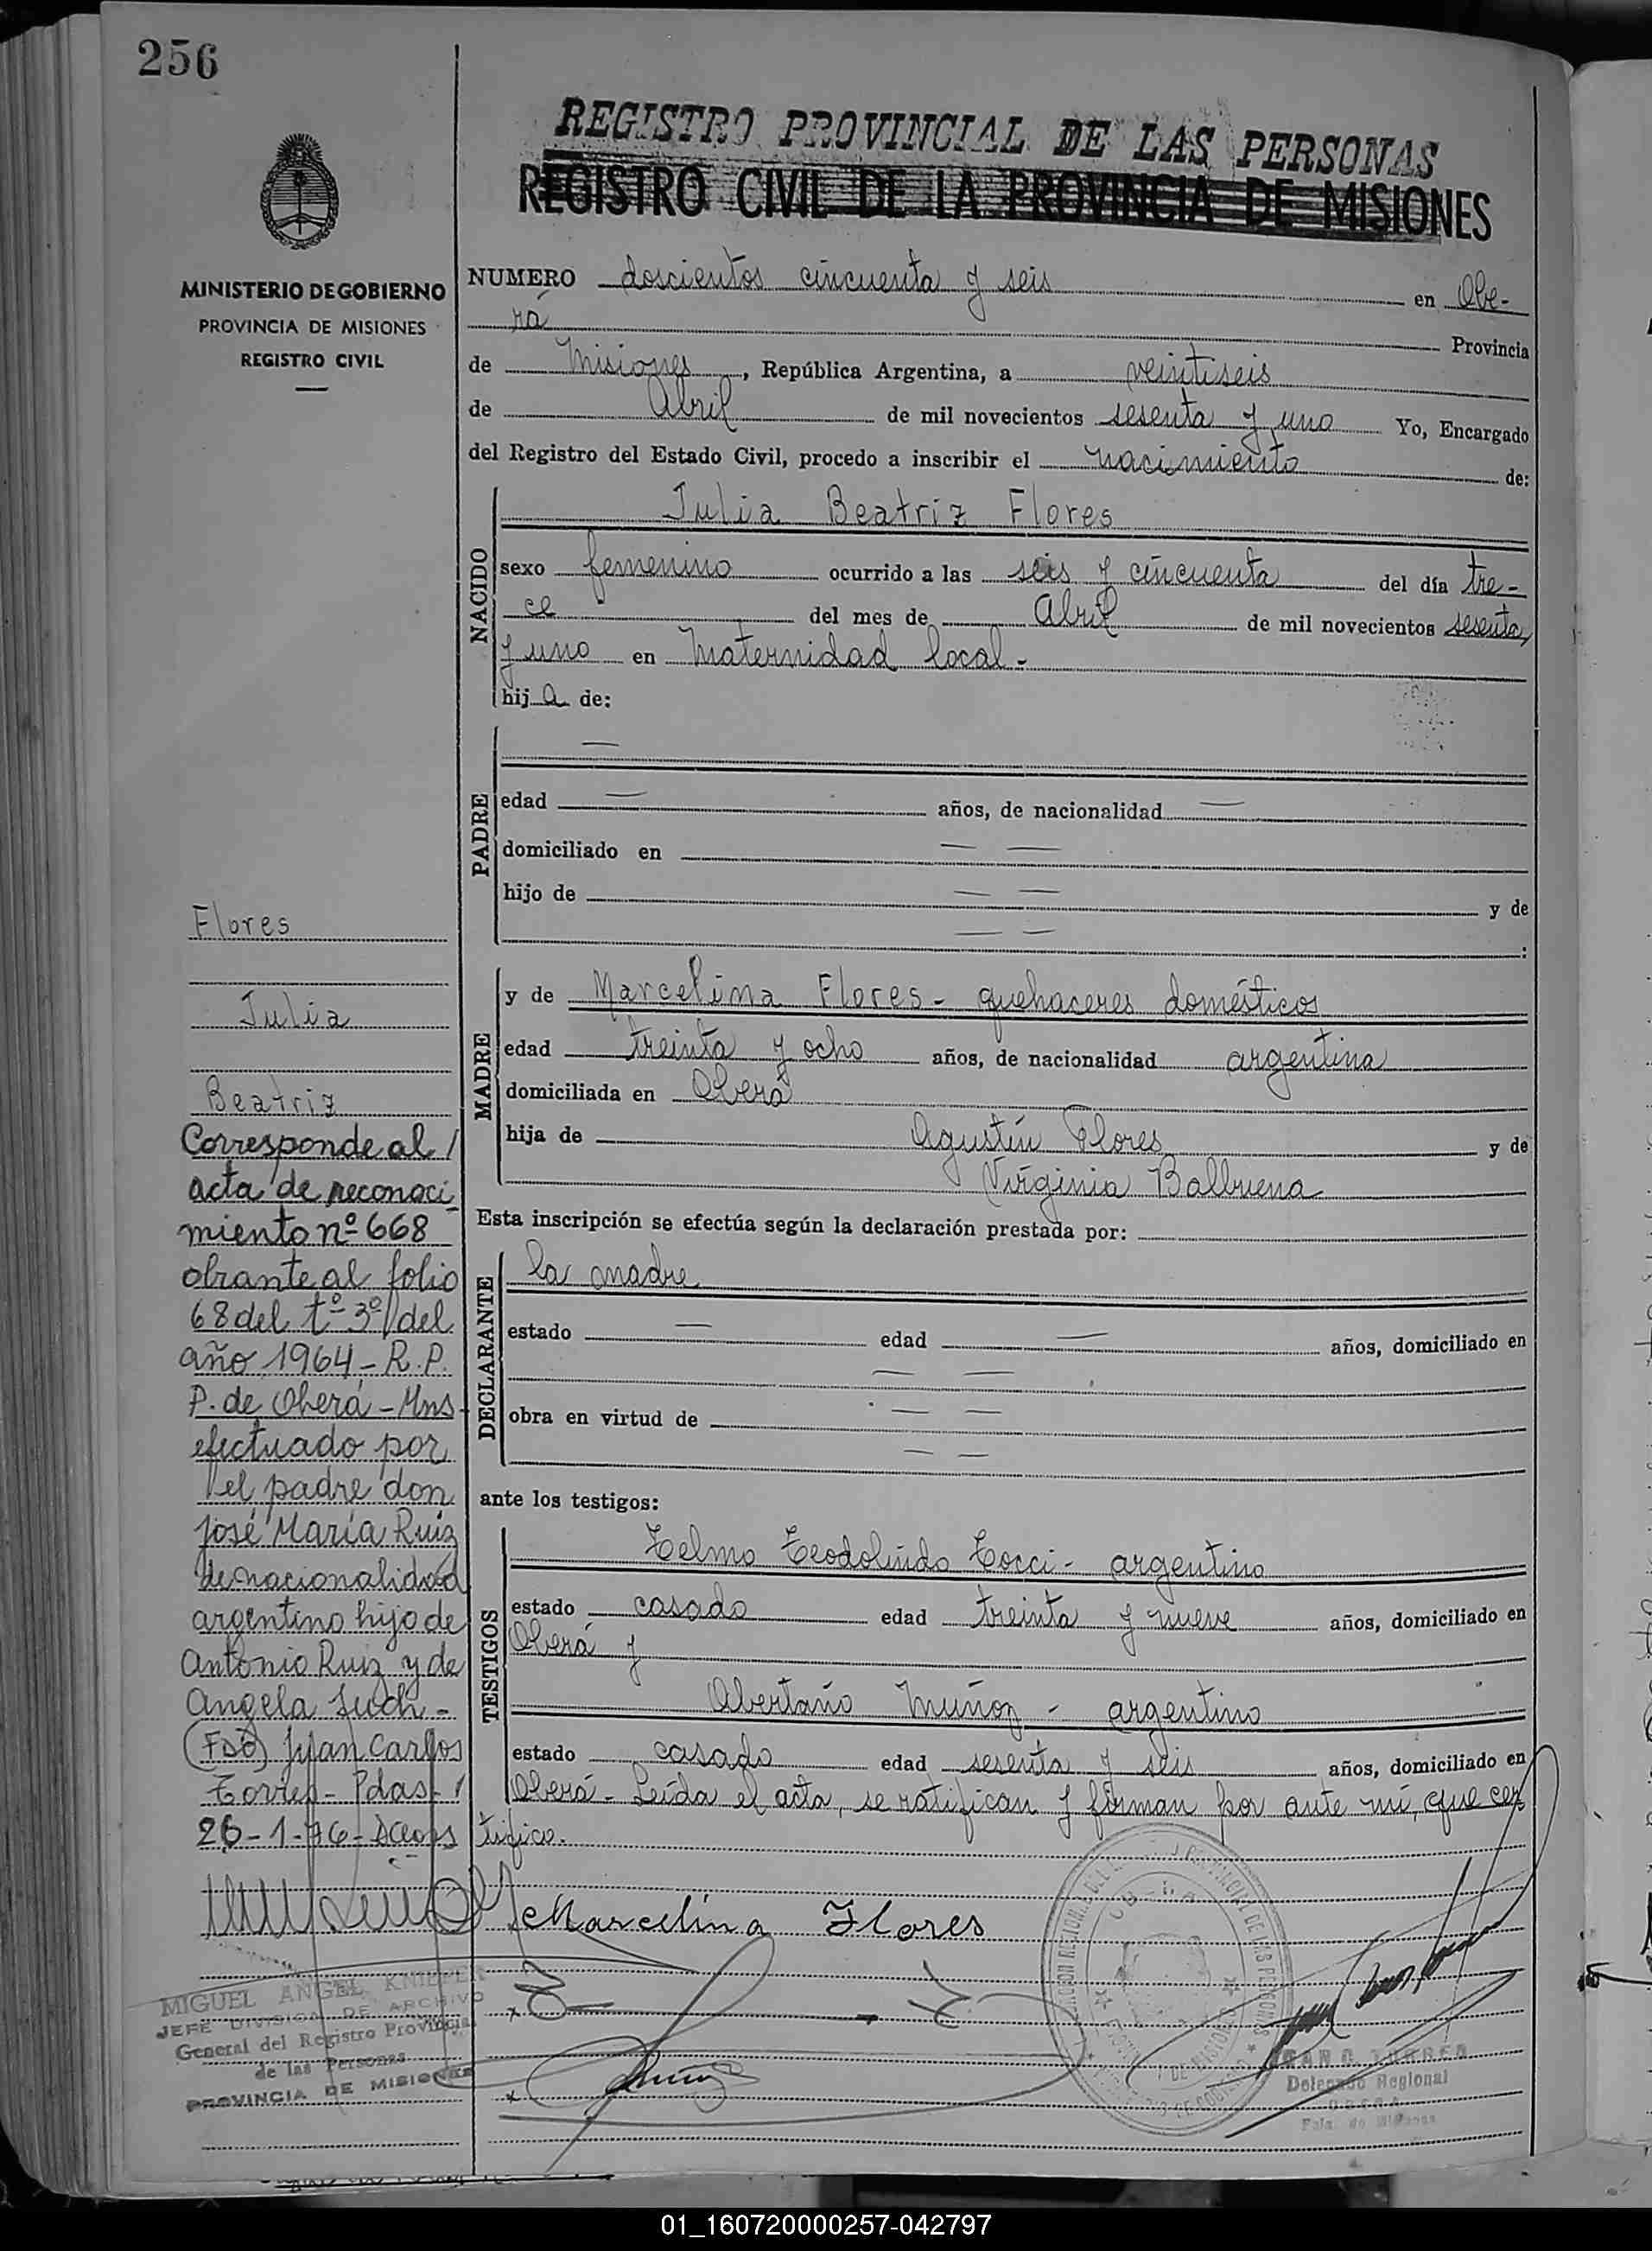 256
REGISTRO PROVINCIAL DE LAS PERSONAS
REGISTRO CIVIL DE LA PROVINCIA DE MISIONES
MINISTERIO DE GOBIERNO
PROVINCIA DE MISIONES
REGISTRO CIVIL
NUMERO doscientos cincuenta y seis en Obe-
rá Provincia
de Misiones, República Argentina, a veintiseis
de Abril de mil novecientos sesenta y uno Yo, Encargado
del Registro del Estado Civil, procedo a inscribir el nacimiento de:
NACIDO
Julia Beatriz Flores
sexo femenino ocurrido a las seis y cincuenta del día tre-
ce del mes de Abril de mil novecientos sesenta
y uno en Maternidad local.-
hija de:
PADRE
—
edad — años, de nacionalidad —
domiciliado en — —
hijo de — — y de
— — :
MADRE
y de Marcelina Flores - quehaceres domésticos
edad treinta y ocho años, de nacionalidad argentina
domiciliada en Oberá
hija de Agustín Flores y de
Virginia Balbuena
Esta inscripción se efectúa según la declaración prestada por:
DECLARANTE
la madre
estado — edad — años, domiciliado en
— —
obra en virtud de — —
— —
ante los testigos:
TESTIGOS
Telmo Teodolindo Tocci - argentino
estado casado edad treinta y nueve años, domiciliado en
Oberá y
Abertano Muñoz - argentino
estado casado edad sesenta y seis años, domiciliado en
Oberá - Leída el acta, se ratifican y firman por ante mí, que cer
tifico.
Flores
Julia
Beatriz
Corresponde al /
acta de reconoci
miento nº 668
obrante al folio
68 del tº 3º/ del
año 1964 - R. P.
P. de Oberá - Mns
efectuado por
el padre don
José María Ruiz
de nacionalidad
argentino hijo de
Antonio Ruiz y de
Angela
(Fdo) Juan Carlos
Torres - Pdas - /
26-1-76-
Marcelina Flores
MIGUEL ANGEL KNIEPER
JEFE DIVISION DE ARCHIVO
General del Registro Provincial
de las Personas
PROVINCIA DE MISIONES
Delegado Regional
OBERA
01_160720000257-042797